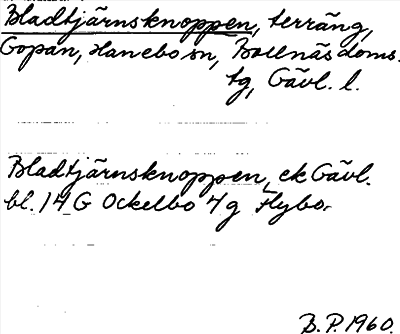 Bladtjärnsknoppen, terräng,
Gopan, Hanebo sn, Bollnäs doms.
tg, Gävl. l.
Bladtjärnsknoppen, ek Gävl.
bl. 14 G Ockelbo 7/g Flybo.
B.P. 1960.